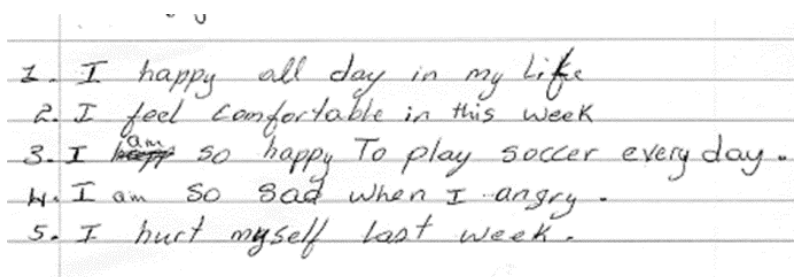 1. I happy all day in my Life
2. I feel Comfortable in this week
3. I am so happy To play soccer every day.
4. I am so sad when I angry.
5. I hurt myself last week.